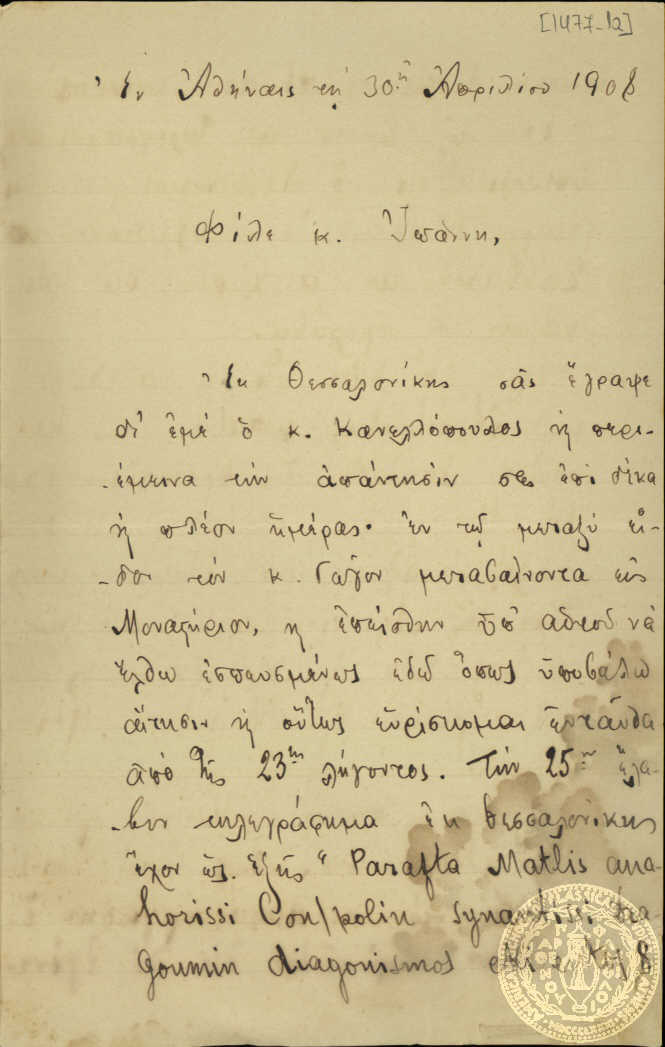 [1477-1a]
Ἐν Ἀθήναις τῇ 30ῇ Ἀπριλίου 1908
Φίλε κ.
Ἐκ Θεσσαλονίκης σᾶς ἔγραψε
δι' ἐμὲ ὁ κ. Κανελλόπουλος κ περι-
-έμεινα τὴν ἀπάντησίν σας ἐπὶ δέκα
κ πλέον ἡμέρας· ἐν τῷ μεταξὺ εἶ-
-δον τὸν κ. μεταβαίνοντα εἰς
Μοναστήριον, κ ἐπείσθην ὑπ' αὐτοῦ νὰ
ἔλθω ἐσπευσμένως ἐδῶ ὅπως ὑποβάλω
αἴτησιν κ οὕτως εὑρίσκομαι ἐνταῦθα
ἀπὸ τῆς 23ης λήγοντος. Τὴν 25ην ἔλα-
-βον τηλεγράφημα ἐκ Θεσσαλονίκης
ἔχον ὡς ἑξῆς " Parafta Matlis ana-
horissi Con/polin synantissi
goumin diagonismos